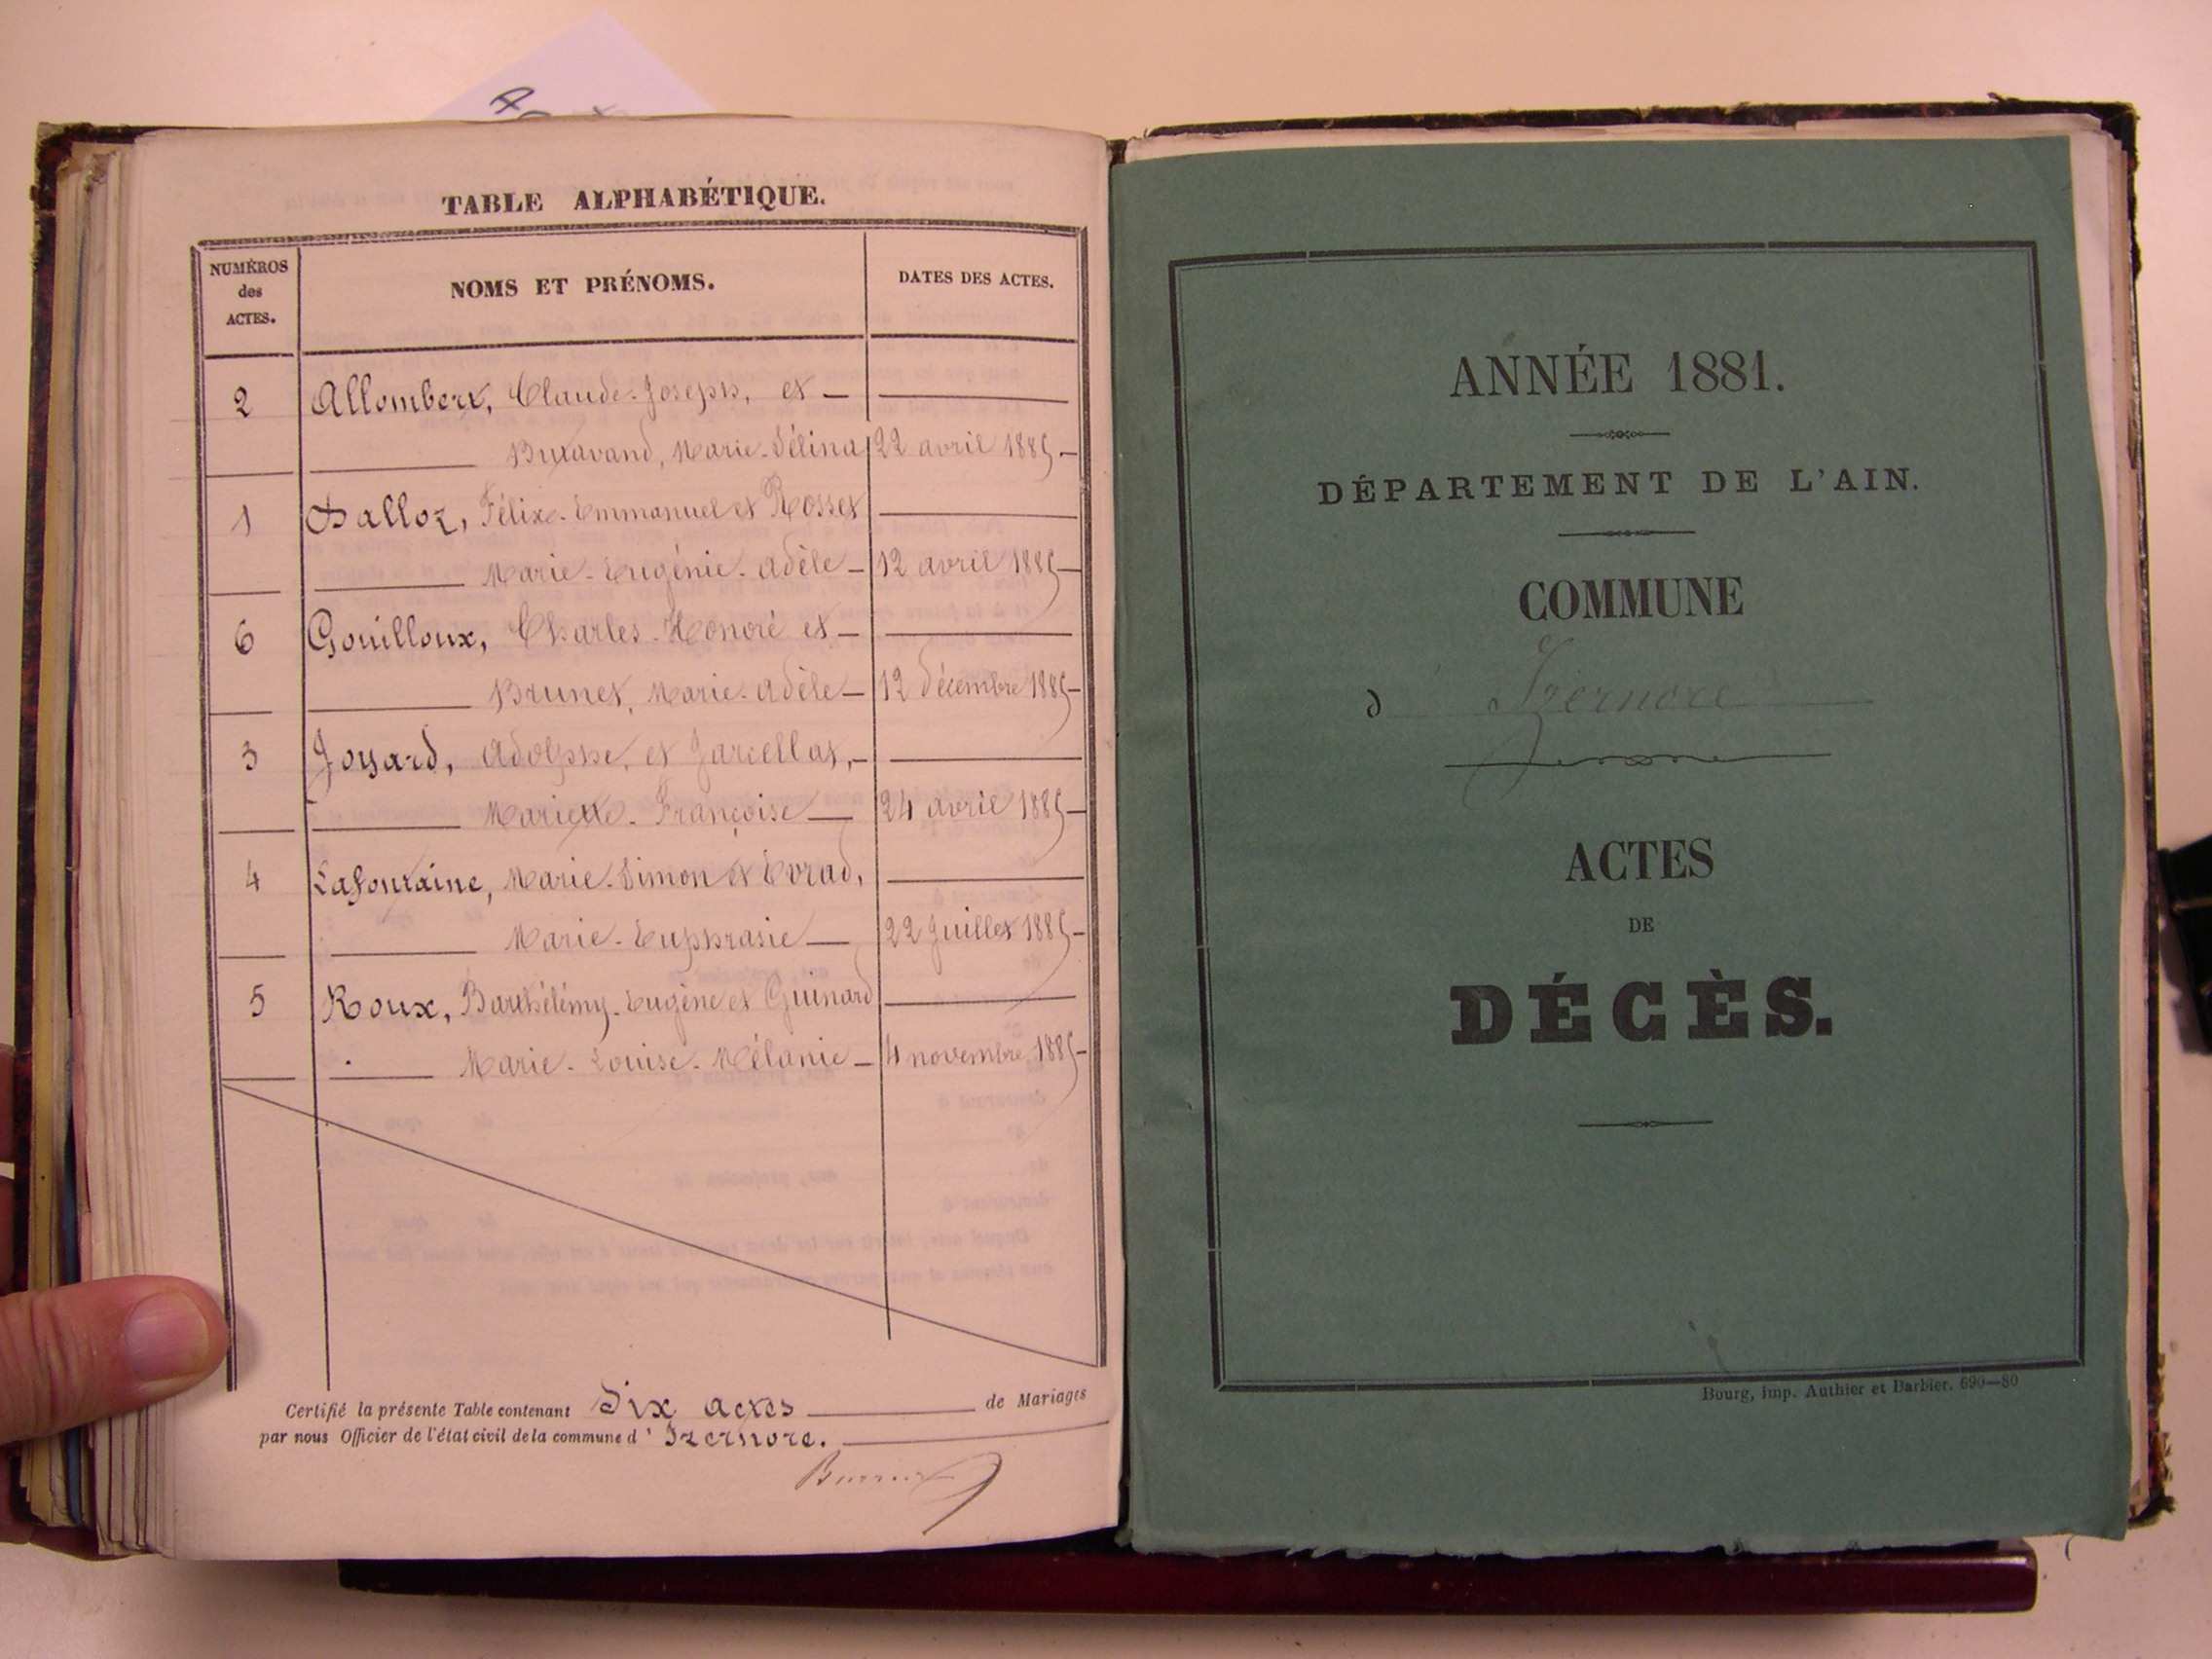 TABLE ALPHABÉTIQUE.
NUMÉROS
des
ACTES.
NOMS ET PRÉNOMS.
DATES DES ACTES.
2 Allombert, Claude-Joseph, et
Buxavand, Marie-Célina 22 avril 1885
1 Dalloz, Félix-Emmanuel et Rosset
Marie-Eugénie-Adèle 12 avril 1885
6 Gouilloux, Charles-Honoré et
Brunet, Marie-Adèle 12 décembre 1885
3 Joyard, Adolphe, et Jarcellat,
Mariette-Françoise 24 avril 1885
4 Lafontaine, Marie-Simon et Evrad,
Marie-Euphrasie 22 Juillet 1885
5 Roux, Barthélémy-Eugène et Guinard
Marie-Louise-Mélanie 4 novembre 1885
Certifié la présente Table contenant Six actes de Mariages
par nous Officier de l'état civil de la commune d'Izernore.
ANNÉE 1881.
DÉPARTEMENT DE L'AIN.
COMMUNE
d Izernore
ACTES
DE
DÉCÈS.
Bourg, imp. Authier et Barbier. 690—80